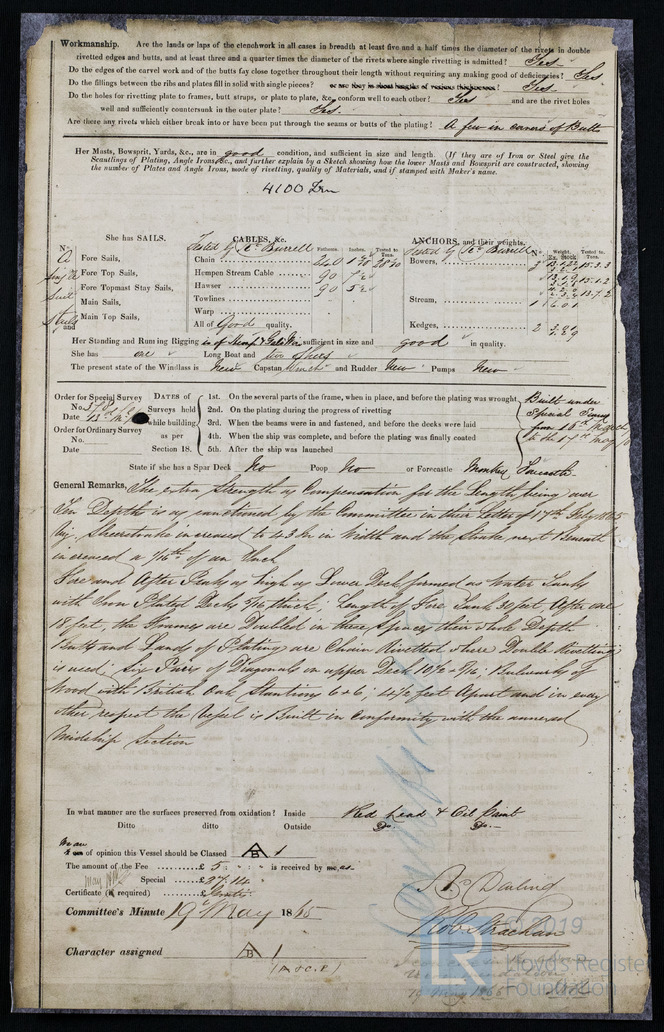 Workmanship. Are the lands or laps of the clenchwork in all cases in breadth at least five and a half times the diameter of the rivets in double
rivetted edges and butts, and at least three and a quarter times the diameter of the rivets where single rivetting is admitted? Yes
Do the edges of the carvel work and of the butts fay close together throughout their length without requiring any making good of deficiencies? Yes
Do the fillings between the ribs and plates fill in solid with single pieces? or are they in short lengths of various thicknesses? Yes
Do the holes for rivetting plate to frames, butt straps, or plate to plate, &c. conform well to each other? Yes and are the rivet holes
well and sufficiently countersunk in the outer plate? Yes.
Are there any rivets which either break into or have been put through the seams or butts of the plating? A few in corners of Butts
Her Masts, Bowsprit, Yards, &c., are in good condition, and sufficient in size and length. (If they are of Iron or Steel give the
Scantlings of Plating, Angle Irons, &c., and further explain by a Sketch showing how the lower Masts and Bowsprit are constructed, showing
the number of Plates and Angle Irons, mode of rivetting, quality of Materials, and if stamped with Maker's name.
She has SAILS. CABLES, &c. Fathoms. Inches. Tested to Tons. ANCHORS, and their weights. No. Weight. Ex. Stock Tested to Tons.
Tested by Burrell Tested by Burrell
No.
Fore Sails, Chain Bowers,
Fore Top Sails, Hempen Stream Cable 90
Fore Topmast Stay Sails, Hawser 90
Main Sails, Towlines Stream, 1
Main Top Sails, Warp
and All of Good quality. Kedges, 2
Her Standing and Running Rigging is of Hemp & sufficient in size and good in quality.
She has one Long Boat and two others
The present state of the Windlass is New Capstan Winch and Rudder New Pumps New
Order for Special Survey DATES of 1st. On the several parts of the frame, when in place, and before the plating was wrought Built under
No. Surveys held 2nd. On the plating during the progress of rivetting Special Survey
Date while building 3rd. When the beams were in and fastened, and before the decks were laid from 16th March
Order for Ordinary Survey as per 4th. When the ship was complete, and before the plating was finally coated to the 17th May
No. Section 18. 5th. After the ship was launched
Date
State if she has a Spar Deck No Poop No or Forecastle Monkey Forecastle
General Remarks, The extra Strength as Compensation for the Length being over
Ten Depths is as sanctioned by the Committee in their Letter of 17th Feby 1865
by, Sheerstrake increased to 43 In in Width and the Strake next Beneath
increased a 1/16th of an Inch
Fore and After Peaks as high as Lower Deck formed as Water Tanks
with Iron Plated Decks 5/16 thick; Length of Fore Tank 30 feet, After one
18 feet, the Frames are Doubled in these Spaces their whole Depth
Butts and Lands of Plating are Chain Rivetted where Double Rivetting
is used; Six Pairs of Diagonals on upper Deck; Bulwarks of
Wood with British Oak Stantions 6 x 6; 4 1/2 feet Apart and in every
other respect the Vessel is Built in Conformity with the annexed
Midship Section
In what manner are the surfaces preserved from oxidation? Inside Red Lead & Oil Paint
Ditto ditto Outside Do. Do.
We are
I am of opinion this Vessel should be Classed A B 1
The amount of the Fee £ 5 is received by me,
Special £ 37.14
Certificate (if required) £ Gratis
Committee's Minute 19 May 1865
Character assigned A B 1
(A & C.P.)
© 2019
Lloyd's Register
Foundation